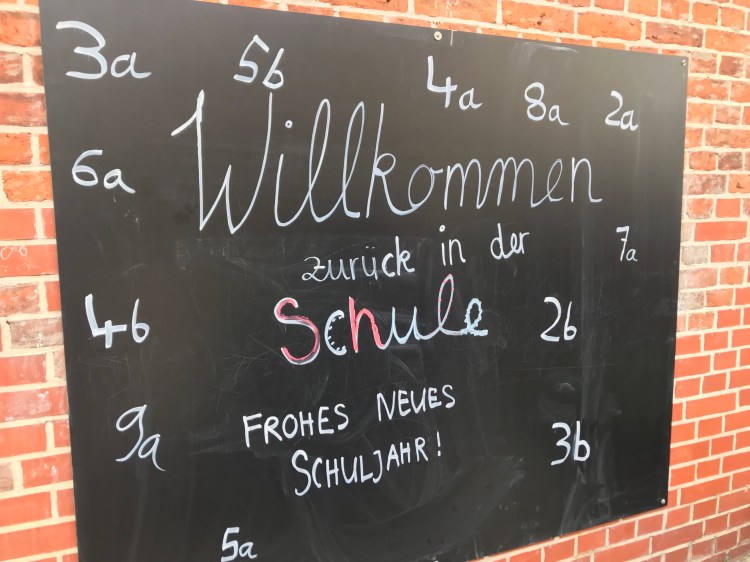 3a 5b 4a 8a 2a
6a Willkommen
zurück in der 7a
4b Schule 2b
9a FROHES NEUES 3b
SCHULJAHR!
5a